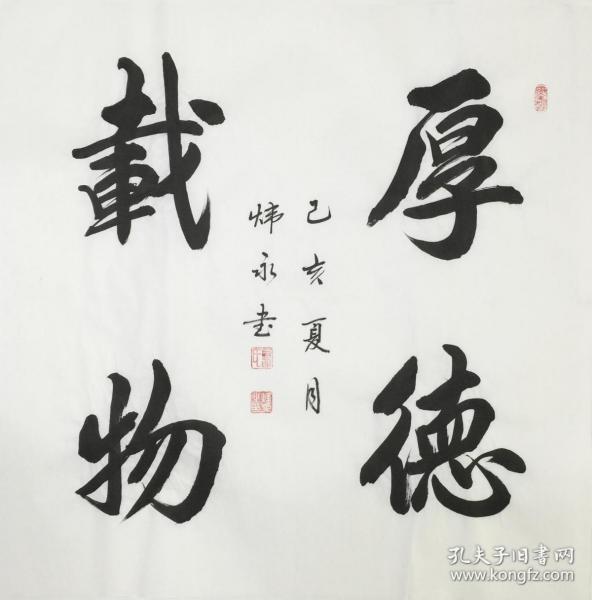 厚德
載物
己亥夏月
炜永书
孔夫子旧书网
www.kongfz.com